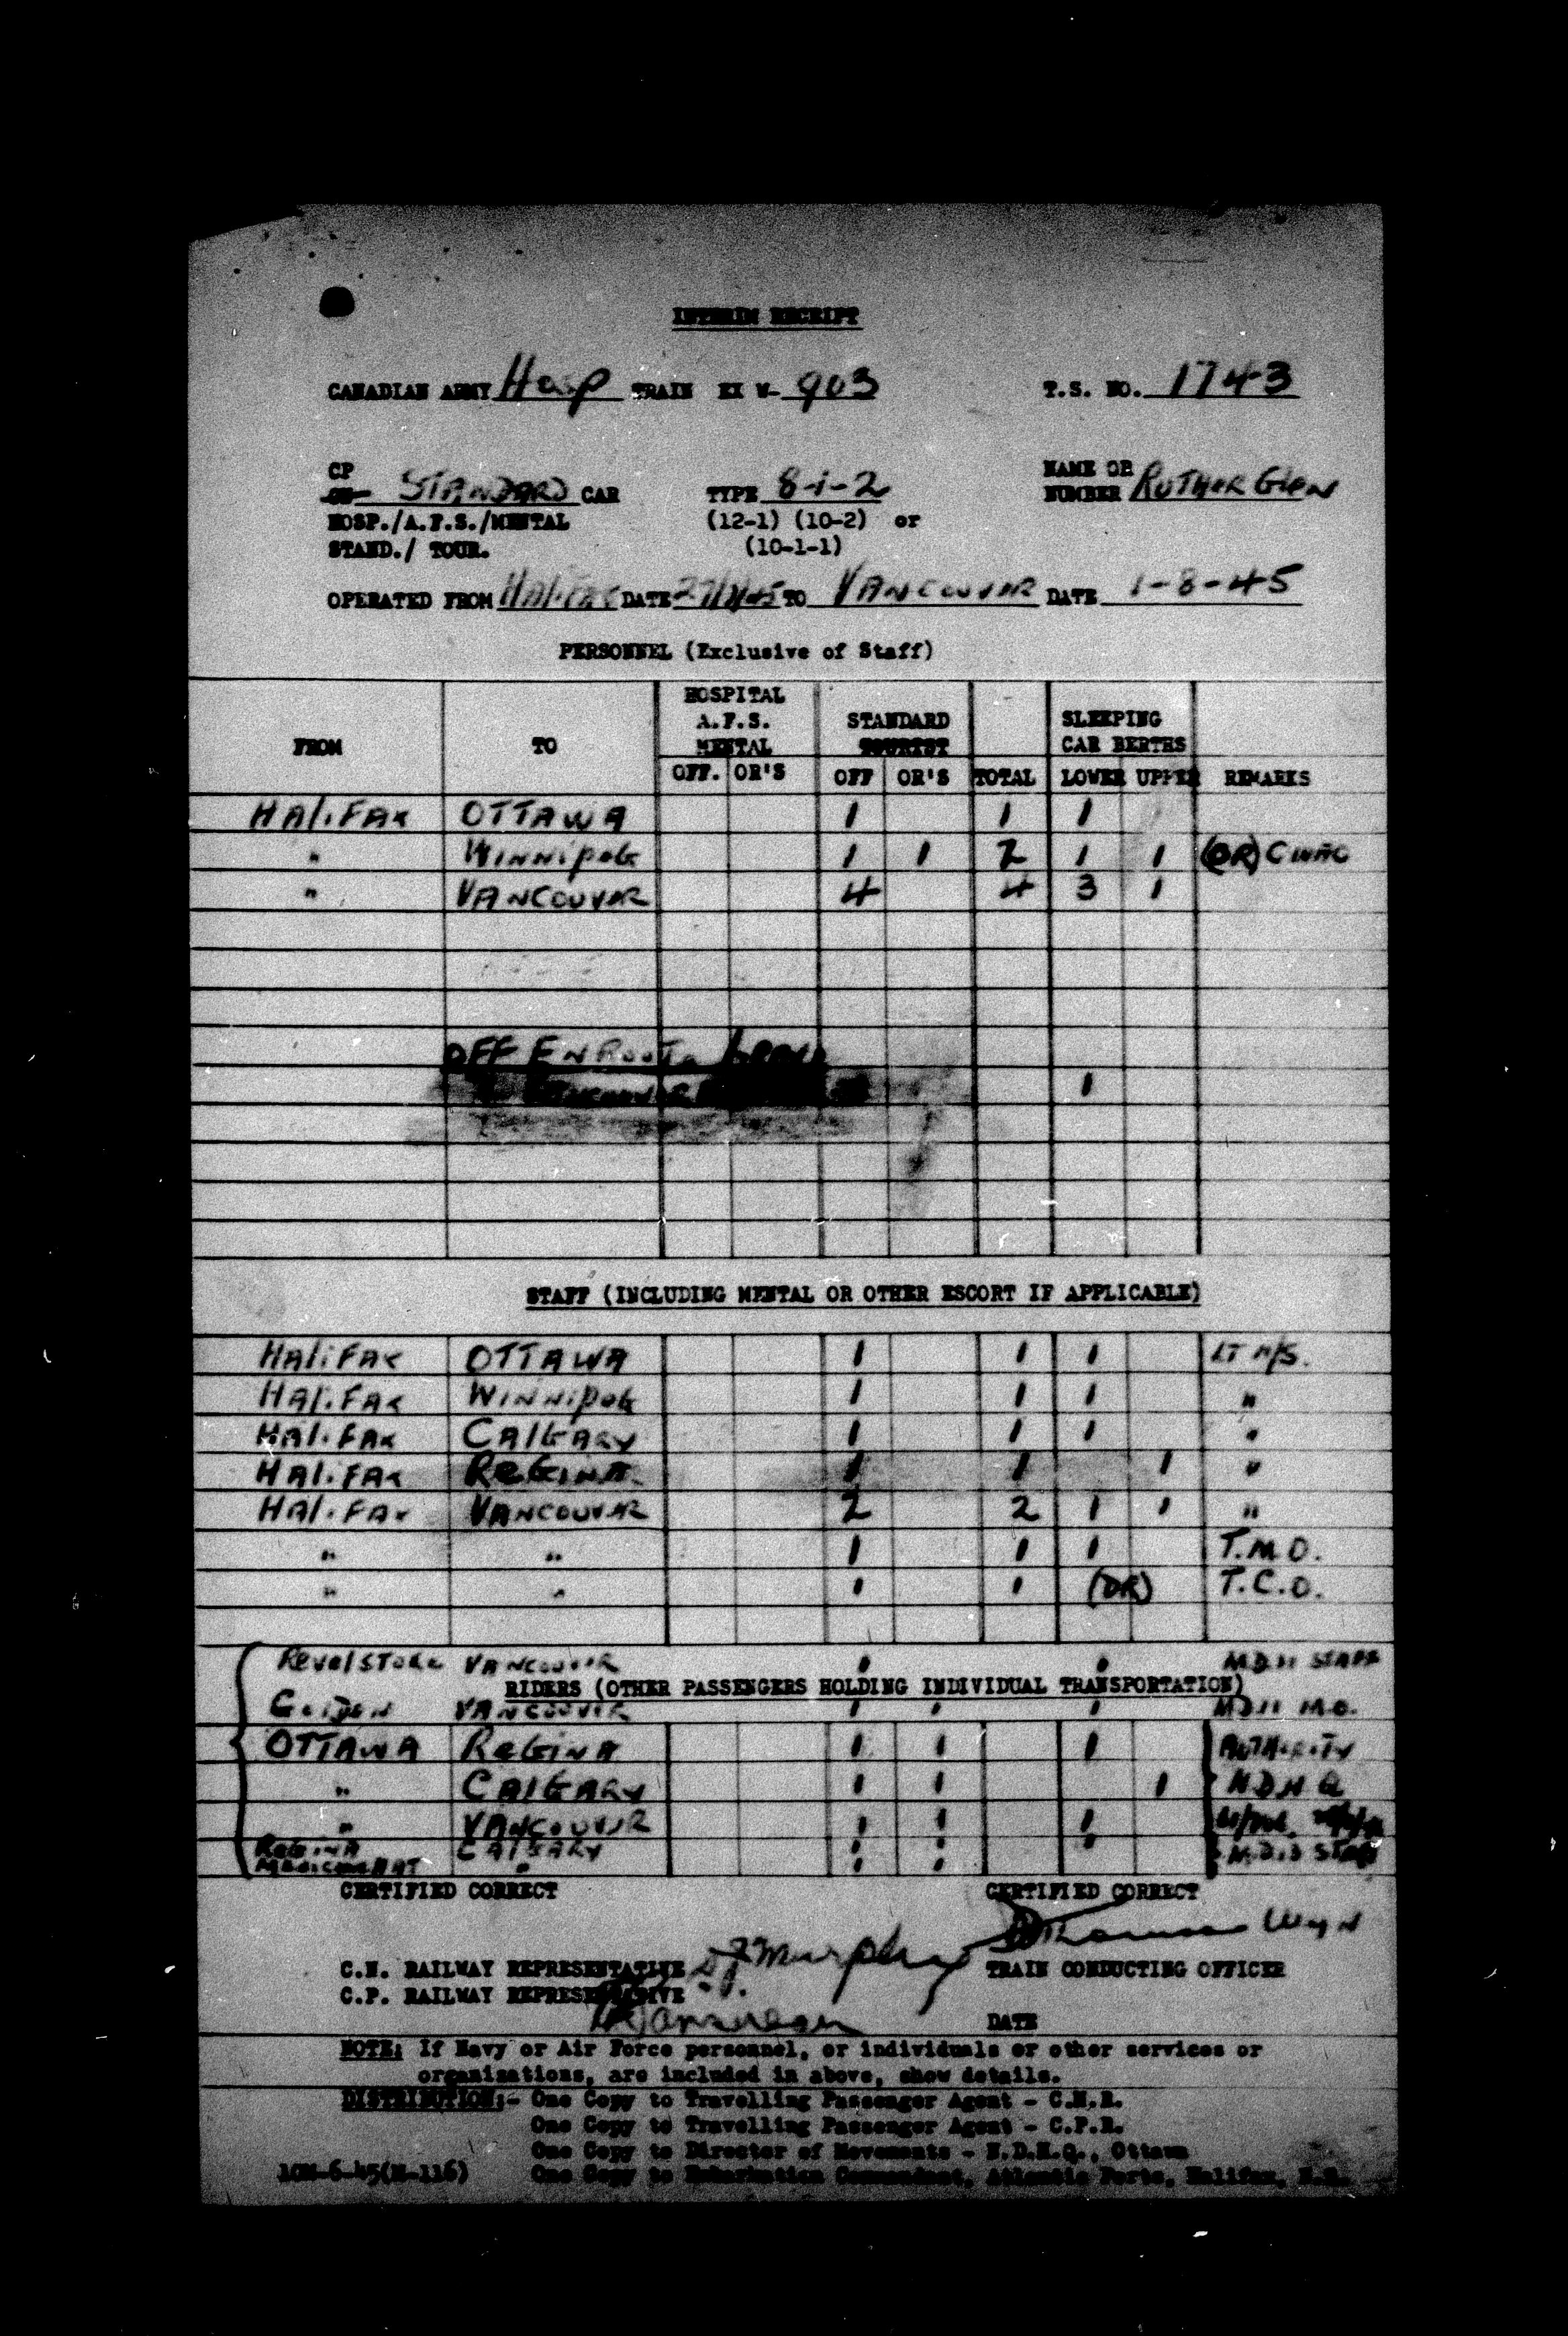 INTERIM RECEIPT
CANADIAN ARMY Hosp TRAIN EX W- 903 T.S. NO. 1743
CP STANDARD CAR TYPE 8-1-2 NAME OR NUMBER RUTHERGLEN
HOSP./A.F.S./MENTAL (12-1) (10-2) or
STAND./ TOUR. (10-1-1)
OPERATED FROM HALIFAX DATE TO VANCOUVER DATE 1-8-45
PERSONNEL (Exclusive of Staff)
FROM TO HOSPITAL A.F.S. MENTAL STANDARD TOURIST SLEEPING CAR BERTHS
OFF. OR'S OFF OR'S TOTAL LOWER UPPER REMARKS
HALIFAX OTTAWA 1 1 1
" WINNIPEG 1 1 2 1 1 (DR) CWAC
" VANCOUVER 4 4 3 1
OFF ENROUTE
1
STAFF (INCLUDING MENTAL OR OTHER ESCORT IF APPLICABLE)
HALIFAX OTTAWA 1 1 1 LT N/S.
HALIFAX WINNIPEG 1 1 1 "
HALIFAX CALGARY 1 1 1 "
HALIFAX REGINA 1 1 1 "
HALIFAX VANCOUVER 2 2 1 1 "
" " 1 1 1 T.M.O.
" " 1 1 (DR) T.C.O.
REVELSTOKE VANCOUVER 1 1 M.D. 11 STAFF
RIDERS (OTHER PASSENGERS HOLDING INDIVIDUAL TRANSPORTATION)
GOLDEN VANCOUVER 1 1 1 M.D. 11 M.O.
OTTAWA REGINA 1 1 1 AUTHORITY
" CALGARY 1 1 1 N.D.H.Q.
" VANCOUVER 1 1 1
REGINA CALGARY 1 1 1 STAFF
MEDICINE HAT " 1 1
CERTIFIED CORRECT CERTIFIED CORRECT
C.N. RAILWAY REPRESENTATIVE Murphy TRAIN CONDUCTING OFFICER
C.P. RAILWAY REPRESENTATIVE
DATE
NOTE: If Navy or Air Force personnel, or individuals or other services or
organizations, are included in above, show details.
DISTRIBUTION:- One Copy to Travelling Passenger Agent - C.N.R.
One Copy to Travelling Passenger Agent - C.P.R.
One Copy to Director of Movements - N.D.H.Q., Ottawa
10M-6-45(M-116) One Copy to Embarkation Commandant, Atlantic Ports, Halifax, N.S.